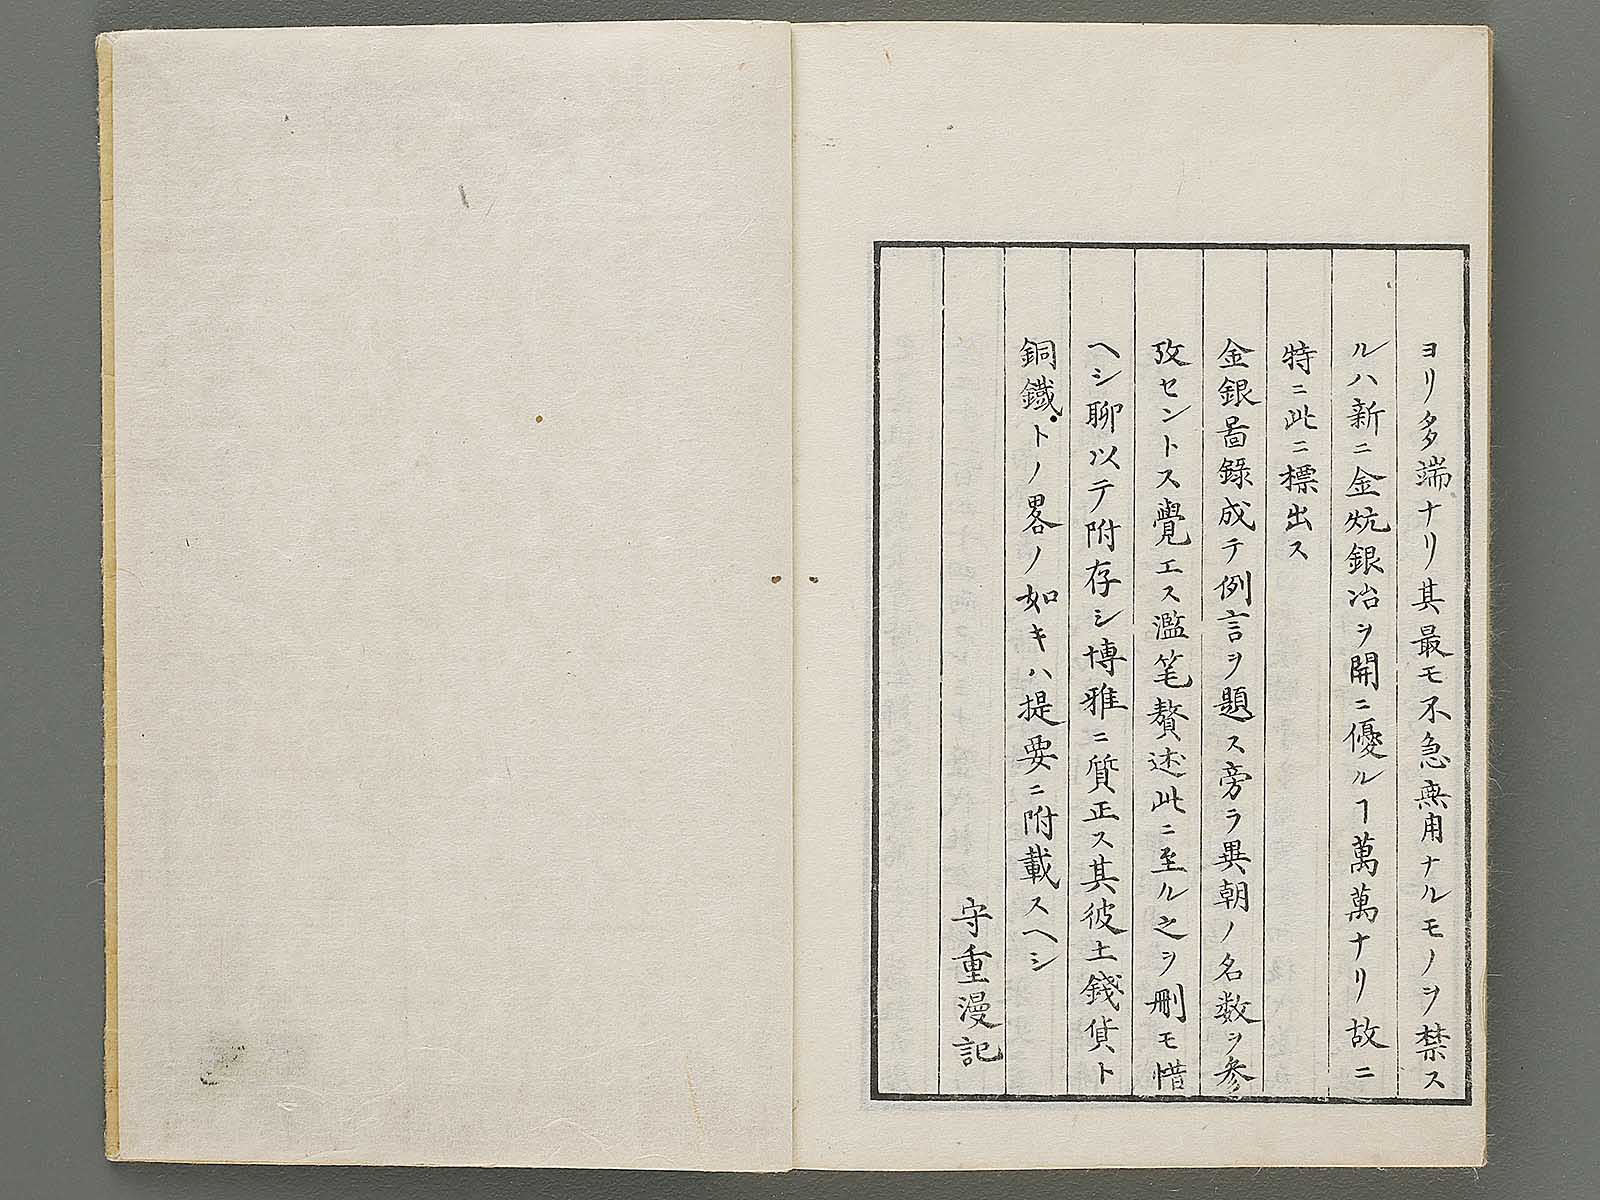 ヨリ多端ナリ其最モ不急無用ナルモノヲ禁ス
ルハ新ニ金炕銀冶ヲ開ニ優ルヿ萬萬ナリ故ニ
特ニ此ニ標出ス
金銀啚錄成テ例言ヲ題ス旁ラ異朝ノ名数ヲ参
攷セントス覺エス濫笔贅述此ニ至ル之ヲ刪モ惜
ヘシ聊以テ附存シ博雅ニ質正ス其彼土錢貨ト
銅鐵トノ畧ノ如キハ提要ニ附載スヘシ
守重漫記